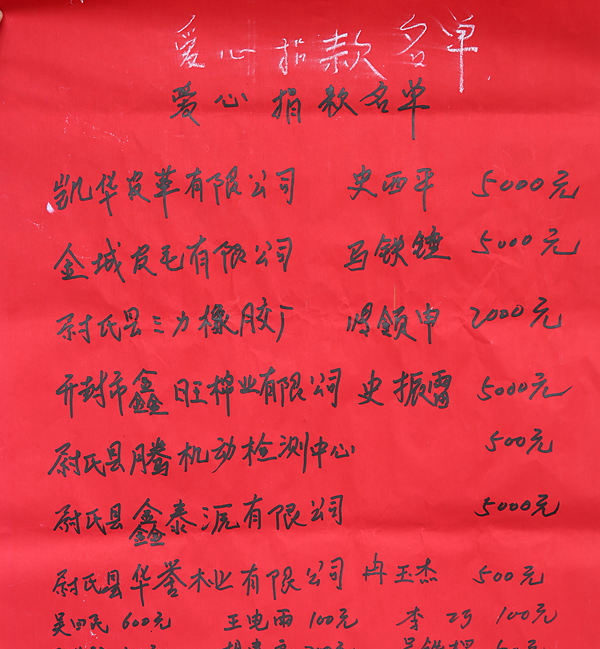 爱心捐款名单
爱心捐款名单
凯华皮革有限公司 史西平 5000元
金城皮毛有限公司 马铁锤 5000元
尉氏县三力橡胶厂 锁申 2000元
开封市鑫旺棉业有限公司 史振雷 5000元
尉氏县腾机动检测中心 500元
尉氏县鑫泰源有限公司 5000元
尉氏县华誉木业有限公司 冉玉杰 500元
吴四民 600元 王电雨 100元 李巧 100元